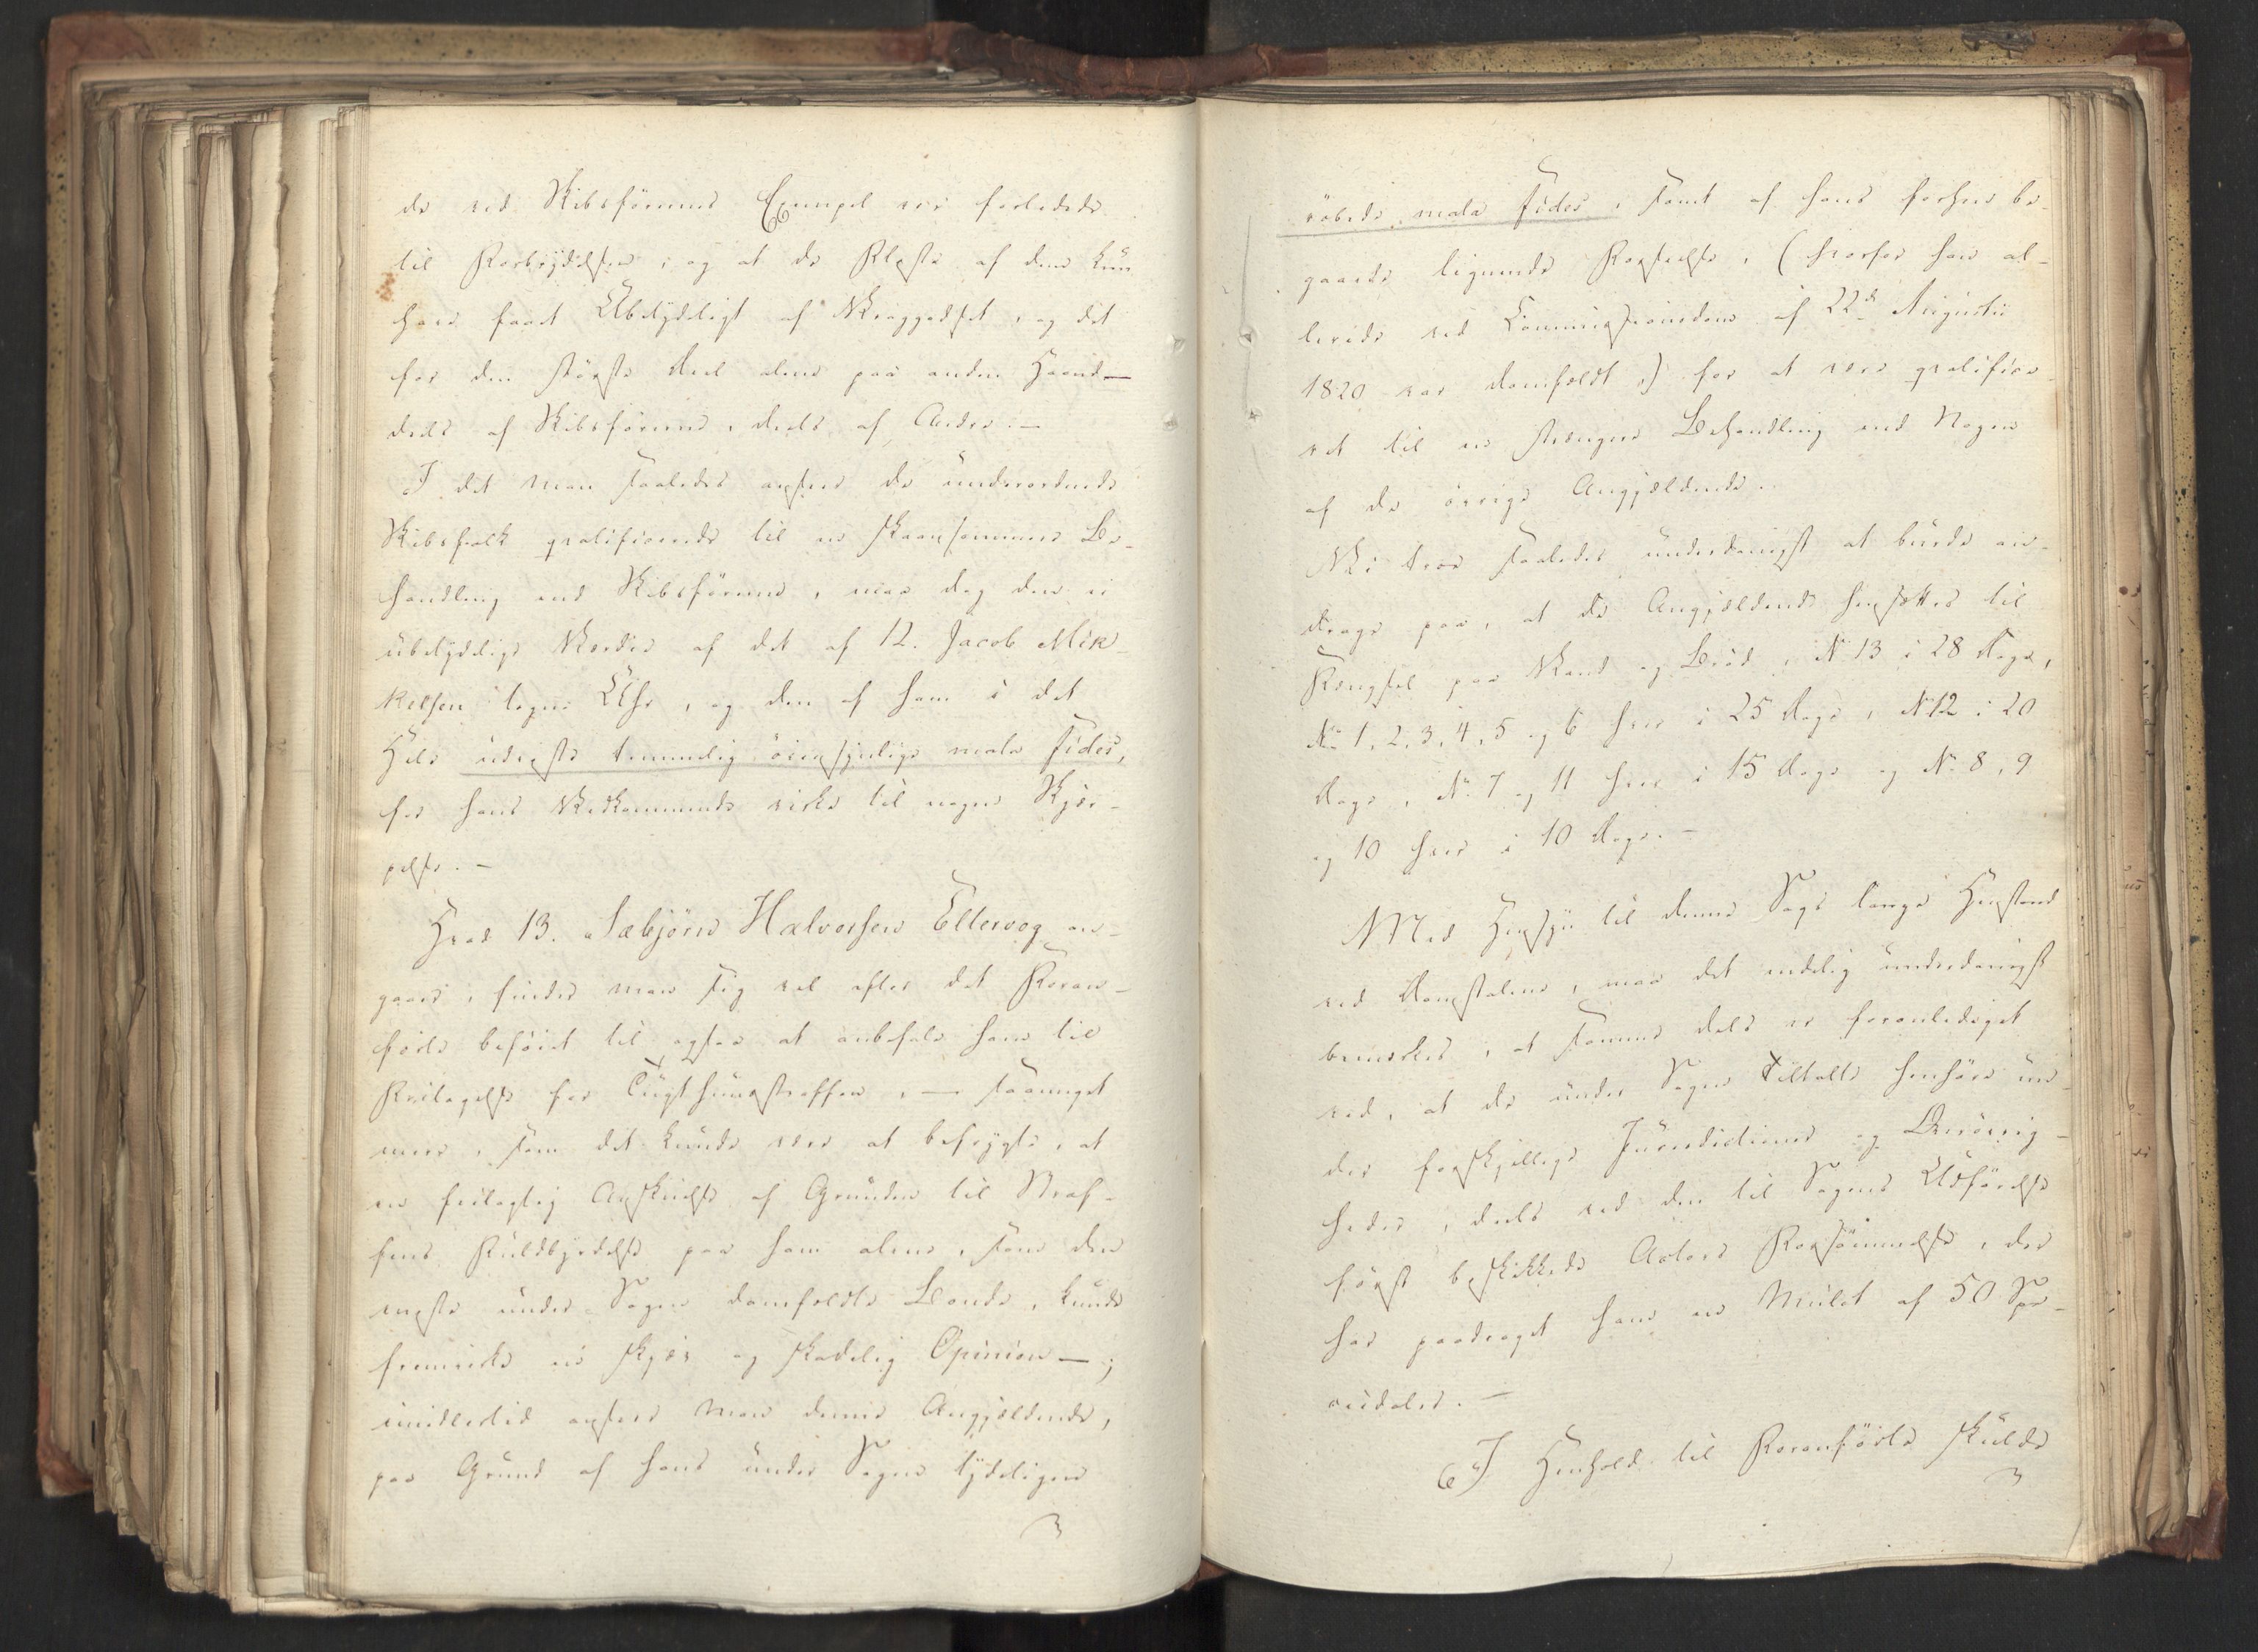 de ved Skibsförerens Exempel ere forledede
til Forbrydelsen; og at de Fleste af dem kun
have faaet Ubetydeligt af Vraggodset, og det
for den störste Deel alene paa anden Haand —
deels af Skibsföreren, deels af Andre. —
I det man saaledes anseer de underordnede
Skibsfolk qvalificerede til en skaansommere Be-
handling end Skibsföreren, maa dog den ei
ubetydelige Værdie af det af 12. Jacob Mik-
kelsen tagne Uhr, og den af ham i det
Hele udviste temmelig öiensynlige mala fides,
for hans Vedkommende virke til nogen Skjær-
pelse. —
Hvad 13. Sæbjörn Halvorsen Ellervog an-
gaaer, finder man sig vel efter det Foran-
förte beföiet til ogsaa at anbefale ham til
Fritagelse for Tugthuusstraffen, — saameget
mere, som det kunde være at befrygte, at
en feilagtig Anskuelse af Grunden til Straf-
fens Fuldbyrdelse paa ham alene, som den
eneste under Sagen domfældte Bonde, kunde
fremvirke en skjæv og skadelig Opinion —;
imidlertid anseer man denne Angjældende,
paa Grund af hans under Sagen tydeligen
röbede mala fides, samt af hans forhen be-
gaaede lignende Forseelse, (hvorfor han al-
lerede ved Commissionsdom af 22de Augusti
1820 var domfældt,) for at være qvalifice-
ret til en strængere Behandling end Nogen
af de övrige Angjældende.
Vi troe saaledes underdanigst at burde an-
drage paa, at de Angjældende hensættes til
Fængsel paa Vand og Bröd, No 13 i 28 Dage,
No 1, 2, 3, 4, 5 og 6 hver i 25 Dage, No 12 i 20
Dage, No 7 og 11 hver i 15 Dage og No 8, 9
og 10 hver i 10 Dage. —
Med Hensyn til denne Sags lange Henstand
ved Domstolene, maa det endelig underdanigst
bemærkes, at samme deels er foranlediget
ved, at de under Sagen Tiltalte henhöre un-
der forskjellige Jurisdictioner og Öevrig-
heder, deels ved den til Sagens Udförelse
först beskikkede Actors Forsömmelse, der
har paadraget ham en Mulct af 50 Spe-
ciedaler. —
I Henhold til Foranförte skulde